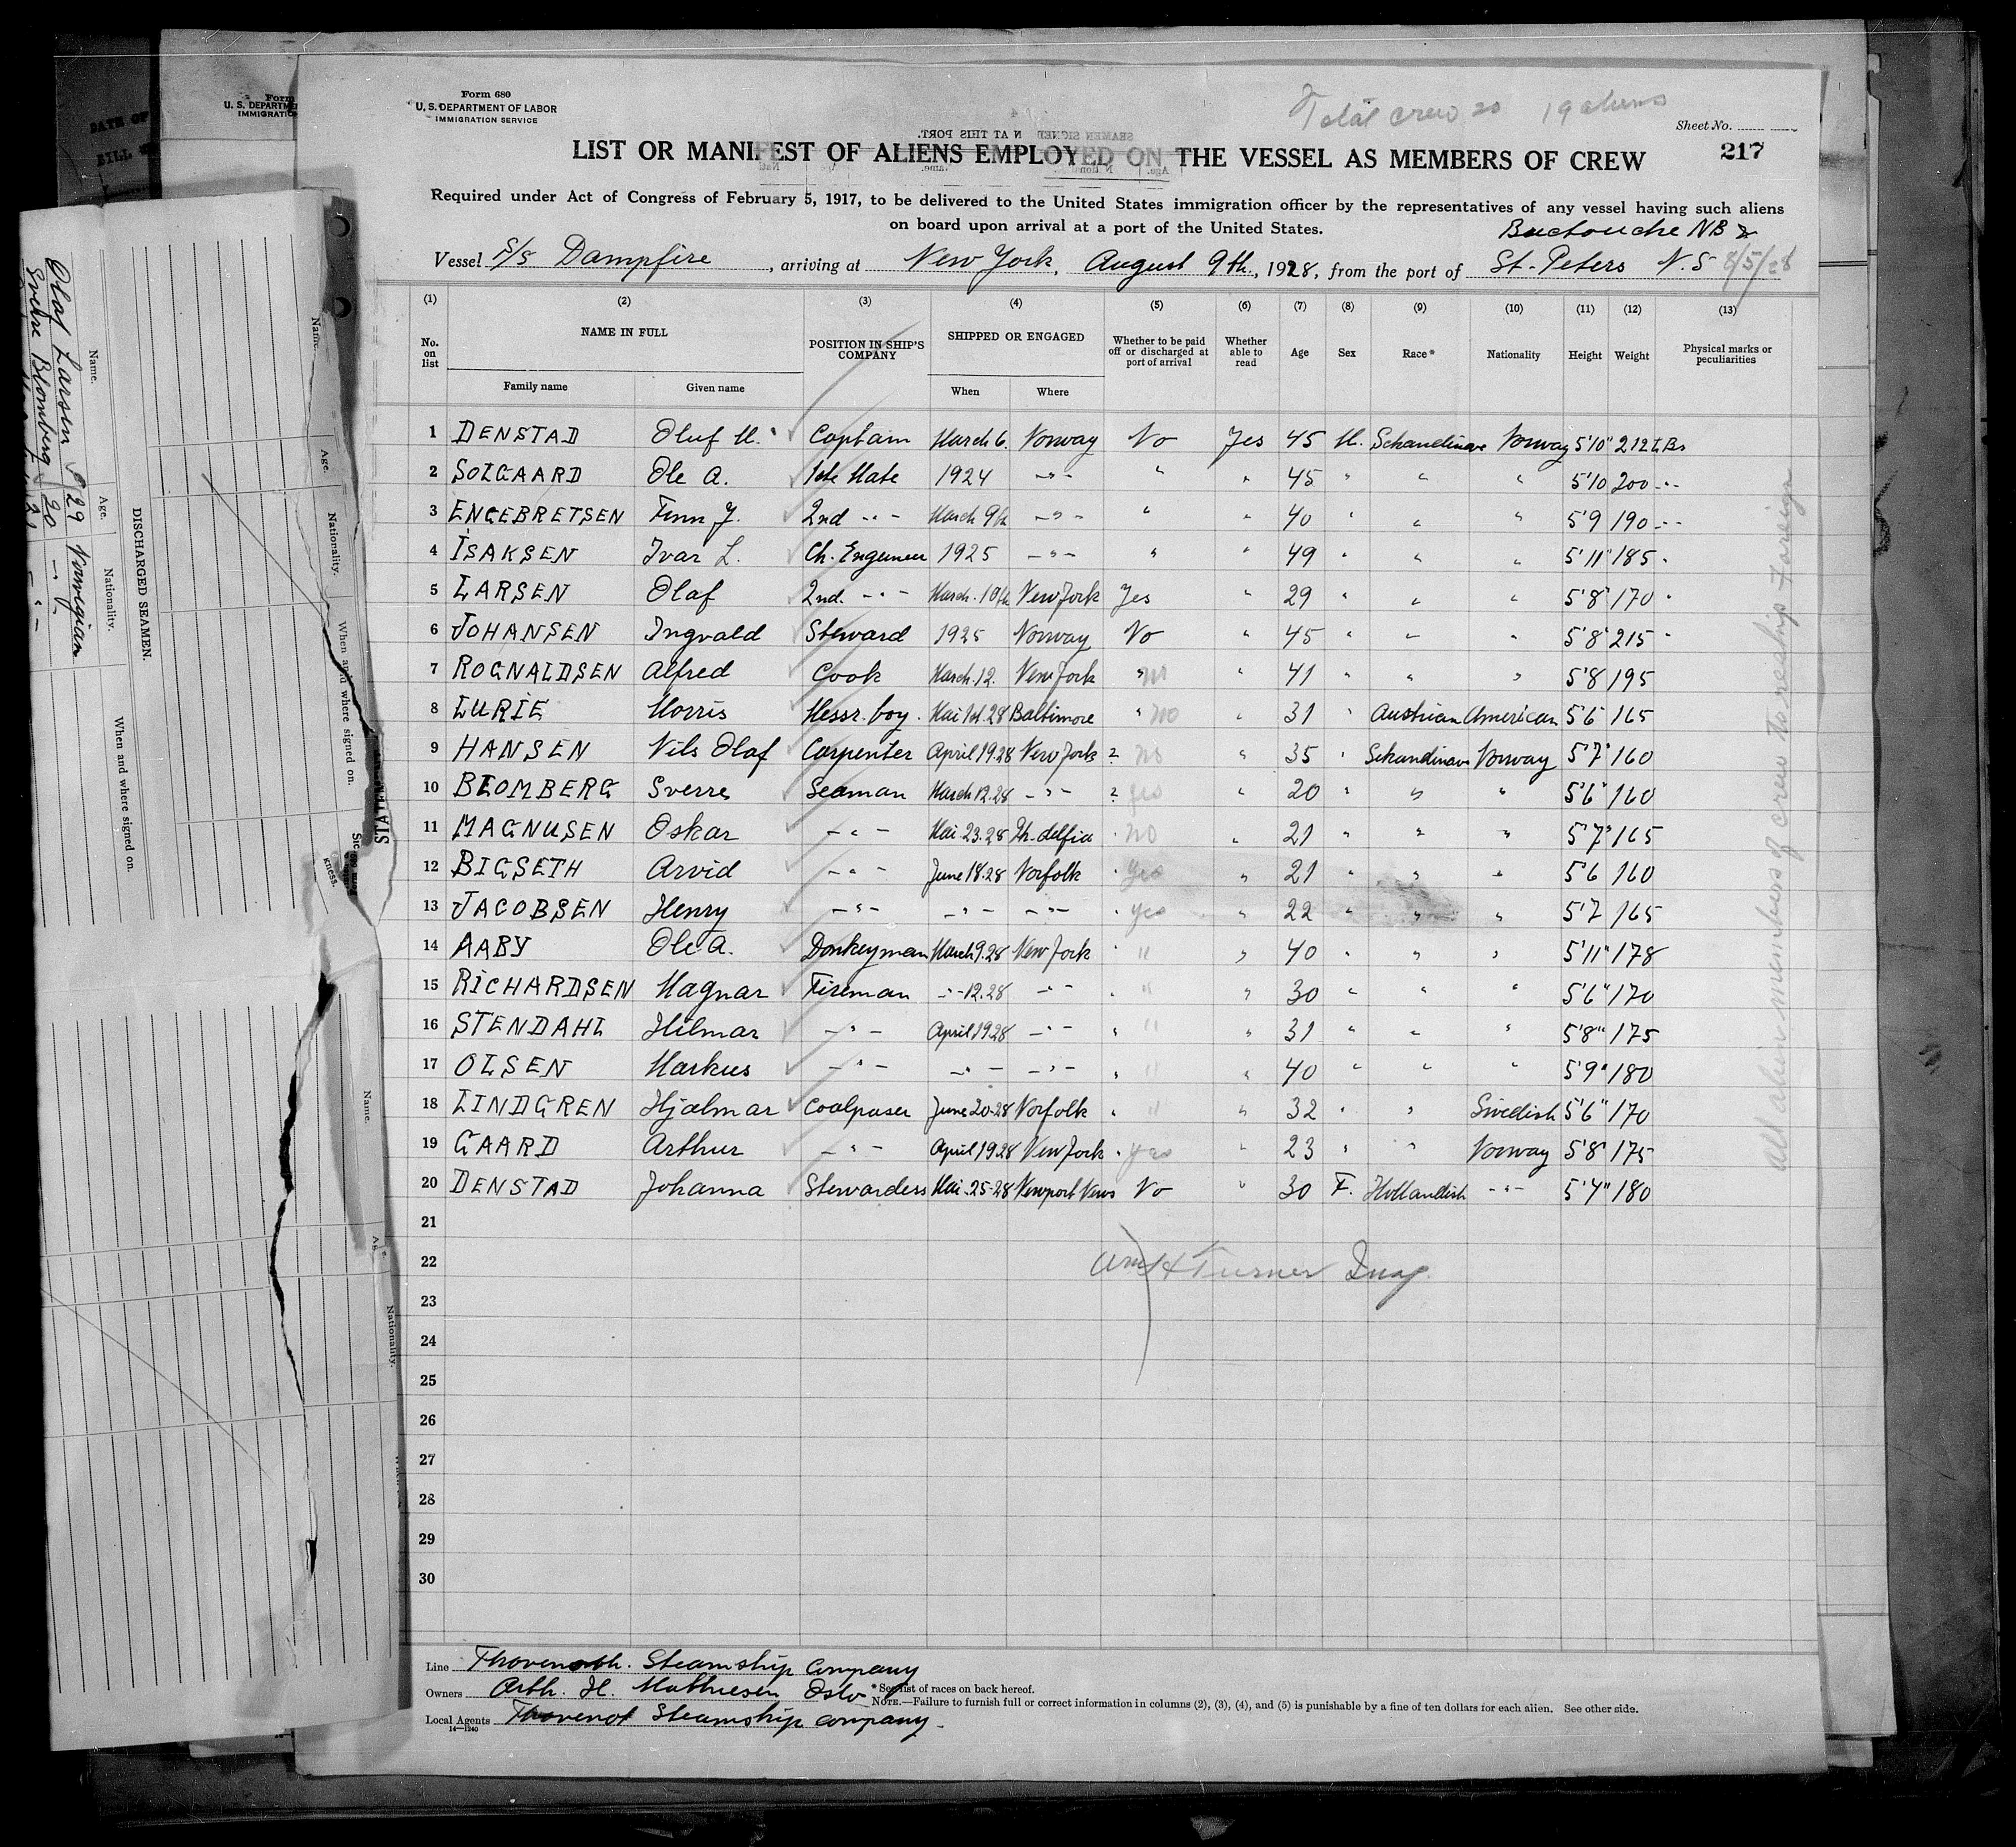 Form 680
U. S. DEPARTMENT OF LABOR
IMMIGRATION SERVICE
Total crew 20 19 aliens
Sheet No.
217
SEAMEN SIGNED N AT THIS PORT.
LIST OR MANIFEST OF ALIENS EMPLOYED ON THE VESSEL AS MEMBERS OF CREW
Required under Act of Congress of February 5, 1917, to be delivered to the United States immigration officer by the representatives of any vessel having such aliens
on board upon arrival at a port of the United States.
Buctouche NB &
Vessel S/S Dampfire, arriving at New York, August 9th, 1928, from the port of St. Peters N.S 8/5/28
(1) (2) (3) (4) (5) (6) (7) (8) (9) (10) (11) (12) (13)
No. on list NAME IN FULL POSITION IN SHIP'S COMPANY SHIPPED OR ENGAGED Whether to be paid off or discharged at port of arrival Whether able to read Age Sex Race* Nationality Height Weight Physical marks or peculiarities
Family name Given name When Where
1 DENSTAD Oluf M. Captain March 6. Norway No Yes 45 M. Schandinave Norway 5'10" 212 LBs
2 SOLGAARD Ole A. 1ste Mate 1924 -"- " " 45 " " " 5'10 200 -"-
3 ENGEBRETSEN Finn J. 2nd -"- March 9th -"- " " 40 " " " 5'9 190 -"-
4 ISAKSEN Ivar L. Ch. Engeneer 1925 -"- " " 49 " " " 5'11" 185 "
5 LARSEN Olaf 2nd. -"- March. 10th New York Yes " 29 " " " 5'8" 170 "
6 JOHANSEN Ingvald Steward 1925 Norway No " 45 " " " 5'8" 215 "
7 ROGNALDSEN Alfred Cook March. 12. New York " no " 41 " " " 5'8 195
8 LURIE Morris Messr. boy. Mai 1st. 28 Baltimore " no " 31 " Austrian American 5'6" 165
9 HANSEN Nils Olaf Carpenter April 19.28 New York ? no " 35 " Schandinave Norway 5'7" 160
10 BLOMBERG Sverre Seaman March 12.28 -"- ? yes " 20 " " " 5'6" 160
11 MAGNUSEN Oskar -"- Mai 23.28 Ph.delfia " no " 21 " " " 5'7" 165
12 BIGSETH Arvid -"- June 18.28 Norfolk " yes " 21 " " " 5'6 160
13 JACOBSEN Henry -"- -"- -"- " yes " 22 " " " 5'7 165
14 AABY Ole A. Donkeyman March 9.28 New York " " " 40 " " " 5'11" 178
15 RICHARDSEN Magnar Fireman -"- 12.28 -"- " " " 30 " " " 5'6" 170
16 STENDAHL Hilmar -"- April 19 28 -"- " " " 31 " " " 5'8" 175
17 OLSEN Markus -"- -"- -"- " " " 40 " " " 5'9" 180
18 LINDGREN Hjalmar Coalpaser June 20-28 Norfolk " " " 32 " " Swedish 5'6" 170
19 GAARD Arthur -"- April 19.28 New York " yes " 23 " " Norway 5'8" 175
20 DENSTAD Johanna Stewardess Mai-25-28 Newport News No " 30 F. Hollandish -"- 5'4" 180
21
22
Wm H Turner Insp.
23
24
25
26
27
28
29
30
All alien members of crew to reship foreign
Line Steamship Company
Owners Arth. H. Mathiesen Oslo
Local Agents Steamship Company.
14—1240
* See list of races on back hereof.
NOTE.—Failure to furnish full or correct information in columns (2), (3), (4), and (5) is punishable by a fine of ten dollars for each alien. See other side.
DISCHARGED SEAMEN.
Name. Age. Nationality. When and where signed on.
Olaf Larsen 29 Norwegian
Sverre Blomberg 20 -"-
21 -"-
Name. Age. Nationality. When and where signed on.
Name. Age. Nationality.
Form
U. S. DEPARTME
IMMIGRATIO
DATE OF
BILL